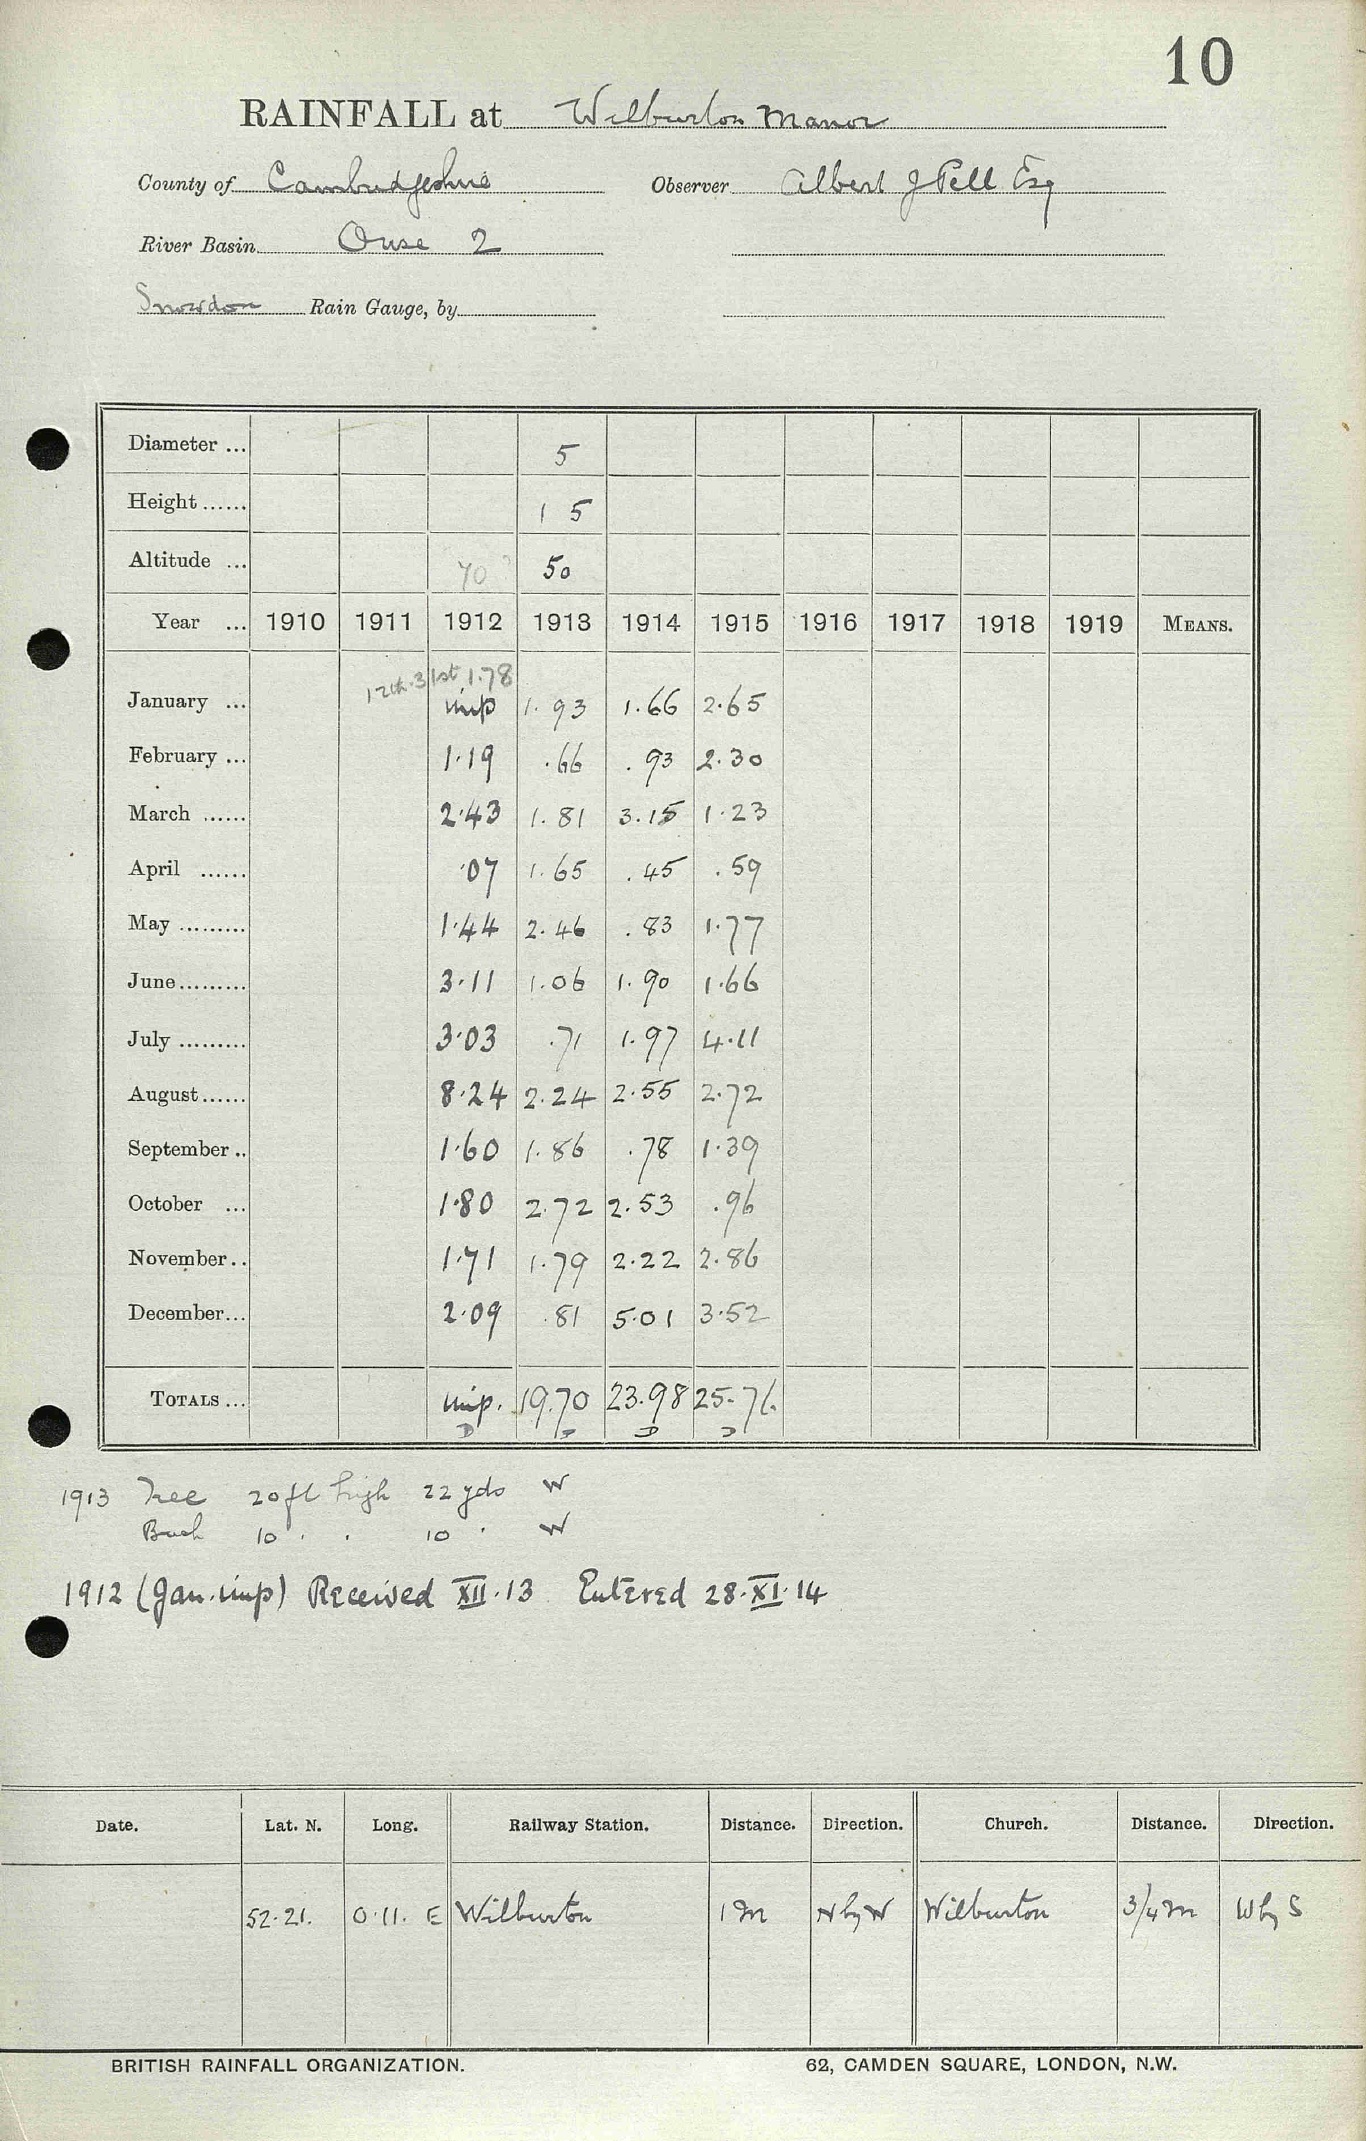 10
RAINFALL at Wilburton Manor
County of Cambridgeshire Observer Albert J Pell Esq
River Basin Ouse 2
Snowdon Rain Gauge, by
Diameter ... 5
Height ...... 1 5
Altitude ... 70? 50
Year ... 1910 1911 1912 1913 1914 1915 1916 1917 1918 1919 MEANS.
12th-31st 1.78
January ... imp 1.93 1.66 2.65
February ... 1.19 .66 .93 2.30
March ...... 2.43 1.81 3.15 1.23
April ...... .07 1.65 .45 .59
May ......... 1.44 2.46 .83 1.77
June......... 3.11 1.06 1.90 1.66
July ......... 3.03 .71 1.97 4.11
August...... 8.24 2.24 2.55 2.72
September .. 1.60 1.86 .78 1.39
October ... 1.80 2.72 2.53 .96
November.. 1.71 1.79 2.22 2.86
December... 2.09 .81 5.01 3.52
TOTALS ... imp. 19.70 23.98 25.76
D D D D
1913 Tree 20 ft high 22 yds W
Bush 10 " " 10 " W
1912 (Jan. imp) Received XII.13 Entered 28.XI.14
Date. Lat. N. Long. Railway Station. Distance. Direction. Church. Distance. Direction.
52.21. 0.11. E Wilburton 1 m N by W Wilburton 3/4 m W by S
BRITISH RAINFALL ORGANIZATION. 62, CAMDEN SQUARE, LONDON, N.W.